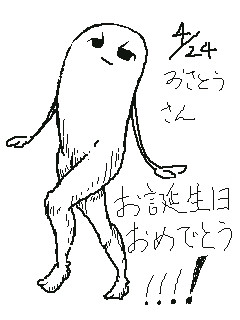 4/24
おさとう
さん
お誕生日
おめでとう
!!!!